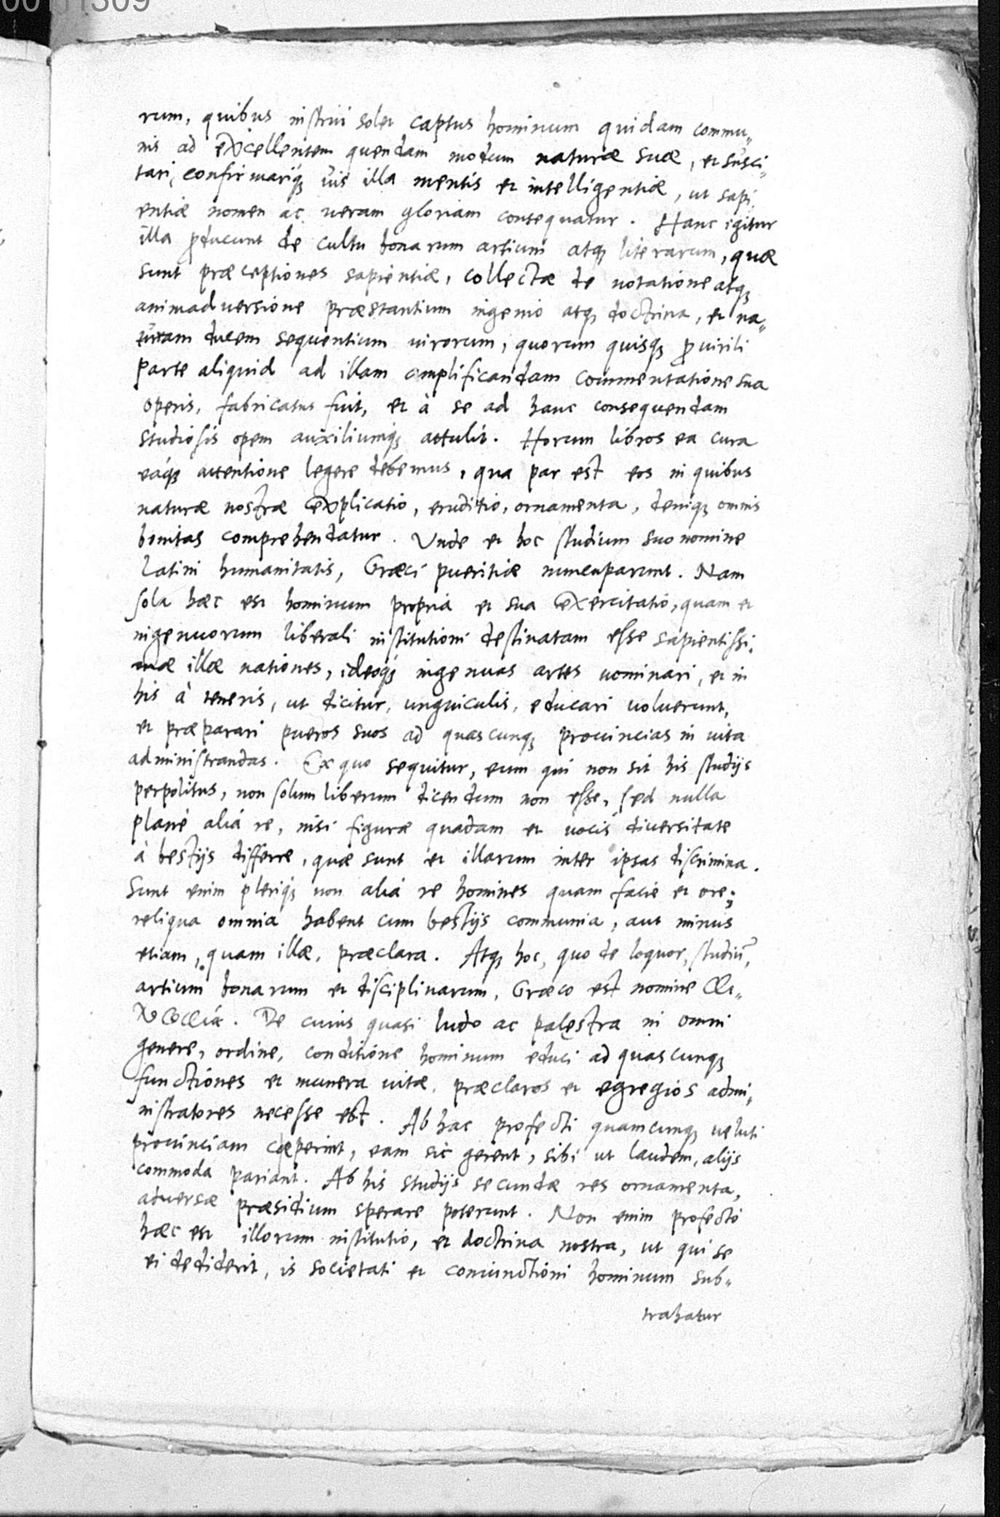 rum, quibus institui solet captus hominum quidam commu„
nis ad excellentem quendam modum naturæ suæ, et susci„
tari, confirmariq; vis illa mentis et intelligentiæ, ut sapi„
entiæ nomen ac ueram gloriam consequatur. Hanc igitur
illa ꝓducunt de cultu bonarum artium atq; literarum, quæ
sunt præceptiones sapientiæ, collectæ de notatione atq;
animaduersione præstantium ingenio atq; doctrina, et na„
turam ducem sequentium uirorum, quorum quisq; ꝓ uirili
parte aliquid ad illam amplificandam commentatione sua
operis, fabricatus fuit, et à se ad hanc consequendam
studiosis opem auxiliumq; attulit. Horum libros ea cura
eaq; attentione legere debemus, qua par est eos in quibus
naturæ nostræ explicatio, eruditio, ornamenta, deniq; omnis
bonitas comprehendatur. Vnde et hoc studium suo nomine
Latini humanitatis, Græci pueritiæ nuncuparunt. Nam
sola hæc est hominum propria et sua exercitatio, quam et
ingenuorum liberali institutioni destinatam esse sapientissi„
mæ illæ nationes, ideoq; ingenuas artes nominari, et in
his à teneris, ut dicitur, unguiculis, educari uoluerunt,
et præparari pueros suos ad quascunq; prouincias in uita
administrandas. Ex quo sequitur, eum qui non sit his studijs
perpolitus, non solum liberum dicendum non esse, sed nulla
planè alia re, nisi figuræ quadam et uocis diuersitate
à bestijs differre, quæ sunt et illarum inter ipsas discrimina.
Sunt enim pleriq; non aliá re homines quam facie et ore;
reliqua omnia habent cum bestijs communia, aut minus
etiam, quam illæ, præclara. Atq; hoc, quo de loquor, studiū,
artium bonarum et disciplinarum, Græco est nomine
De cuius quasi ludo ac palęstra in omni
genere, ordine, conditione hominum educi ad quascunq;
functiones et munera uitæ, præclaros et egregios admi„
nistratores necesse est. Ab hac profecti quamcunq; ueluti
prouinciam cœperint, eam sic gerent, sibi ut laudem, alijs
commoda pariant. Ab his studijs secundæ res ornamenta,
aduersæ præsidium sperare poterunt. Non enim profecto
hæc est illorum institutio, et doctrina nostra, ut qui se
ei dediderit, is societati et coniunctioni hominum sub„
trahatur